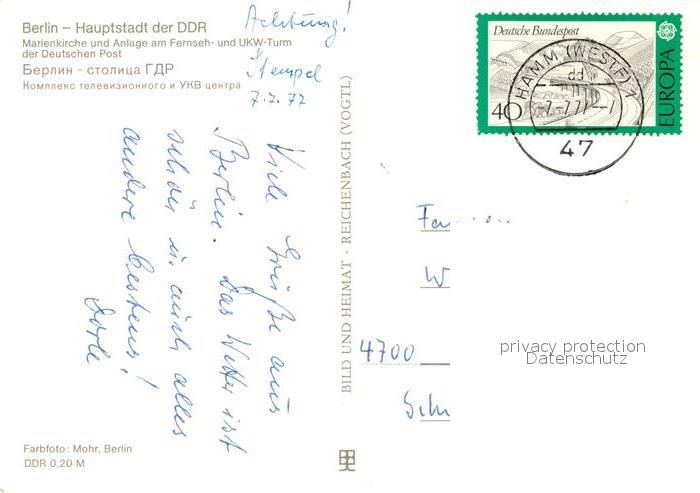 Berlin – Hauptstadt der DDR
Marienkirche und Anlage am Fernseh- und UKW-Turm
der Deutschen Post
Берлин - столица ГДР
Комплекс телевизионного и УКВ центра
Achtung!
Stempel
7.7.77
Viele Grüße aus
Berlin. Das Wetter ist
schön u. auch alles
andere bestens!
BILD UND HEIMAT · REICHENBACH (VOGTL)
Deutsche Bundespost
40
EUROPA
HAMM (WESTF) 1
dd
-7.-7.77.--7
47
Fa
W
4700
Sch
privacy protection
Datenschutz
Farbfoto: Mohr, Berlin
DDR 0,20 M